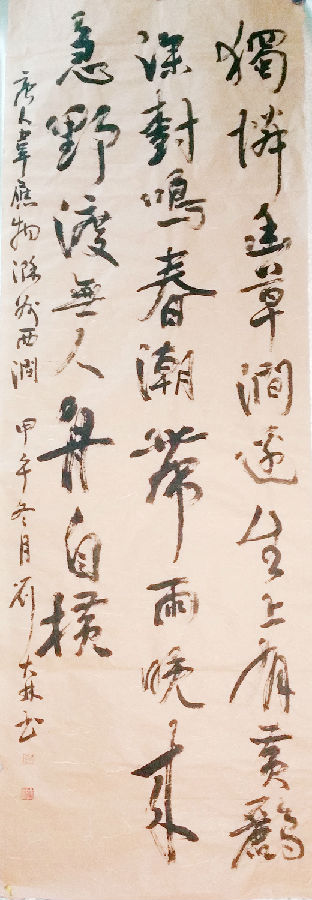 獨憐幽草澗邊生上有黃鸝
深對鳴春潮帶雨晚來
急野渡無人舟自橫
唐人韋應物滁州西澗 甲午冬月 劉大林书